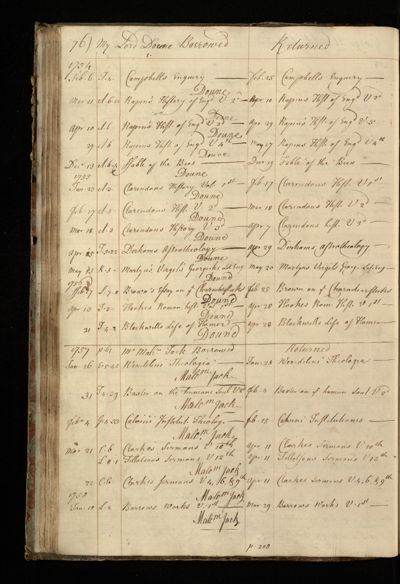 76) My Lord Doune Borrowed Returned
1754
Feb. 6 Campbells Enquiry Feb. 25 Campbells Enquiry
Doune
Mar 11 Rapins History of Engd V. 2d Apr 10 Rapins Hist of Engd V 2d
Doune
Apr 10 Rapins Hist. of Engd V 3d Apr 29 Rapins Hist. of Engd V. 3d
Doune
29 Rapins Hist. of Engd V 4th May 27 Rapins Hist of Engd V 4th
Doune
Decr 13 Fable of the Bees Fable of the Bees
1755 Doune
Jan. 23 Clarendons History Vol. 1st Feb. 17 Clarendons Hist. V 1st
Doune
Feb. 17 Clarendons Hist. V. 2d Mar 18 Clarendons Hist. V 2d
Doune
Mar 18 Clarendons History V 3d Apr 7 Clarendons Hist. V 3d
Doune
Derhams Astrotheology Apr 29 Derhams Astrotheology
Doune
May Martyns Virgils Georgicks May 20 Martyns Virgils Georg.
1756 Doune
Brown's Essay on ye Characteristicks Feb 25 Brown on ye Characteristicks
Doune
Apr 10 Hookes Roman Hist. Apr 28 Hookes Rom Hist.
Doune
21 Blackwells Life of Homer Apr 28 Blackwells Life of Homer
Doune
1757 p. 41 Mr Malm Jack Borrowed Returned
Jan 26 Wendelini Theologia Jan. 28 Wendelini Theologia
Malm Jack
31 Baxter on the Human Soul V 2d Feb. 4 Baxter on ye human Soul V 2d
Malm Jack
Feb. 4 Calvini Institut. Theolog. Feb. 25 Calvini Institutiones
Malm Jack
Mar 21 C.6 Clarkes Sermons V 10th Apr 11 Clarkes Sermons V 10th
Tillotsons Sermons V 12th Apr 11 Tillotsons Sermons V 12th
Malm Jack
22 C.6 Clarkes Sermons V 4, 6, & 9th Apr 11 Clarkes Sermons V 4, 6, & 9th
1758 Malm Jack
Jan. 18 Barrows Works V. 1st Mar 29 Barrows Works V. 1st
Malm Jack
p. 208